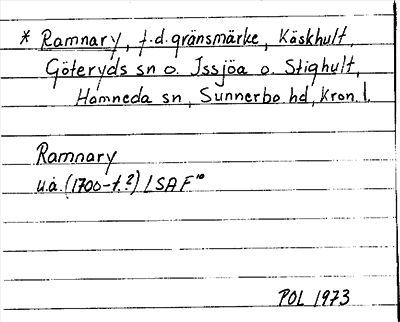 * Ramnary, f.d. gränsmärke, Käskhult,
Göteryds sn o. Issjöa o. Stighult,
Hamneda sn, Sunnerbo hd, Kron. l.
Ramnary
u.å. (1700-t.?) LSA F 10
POL 1973